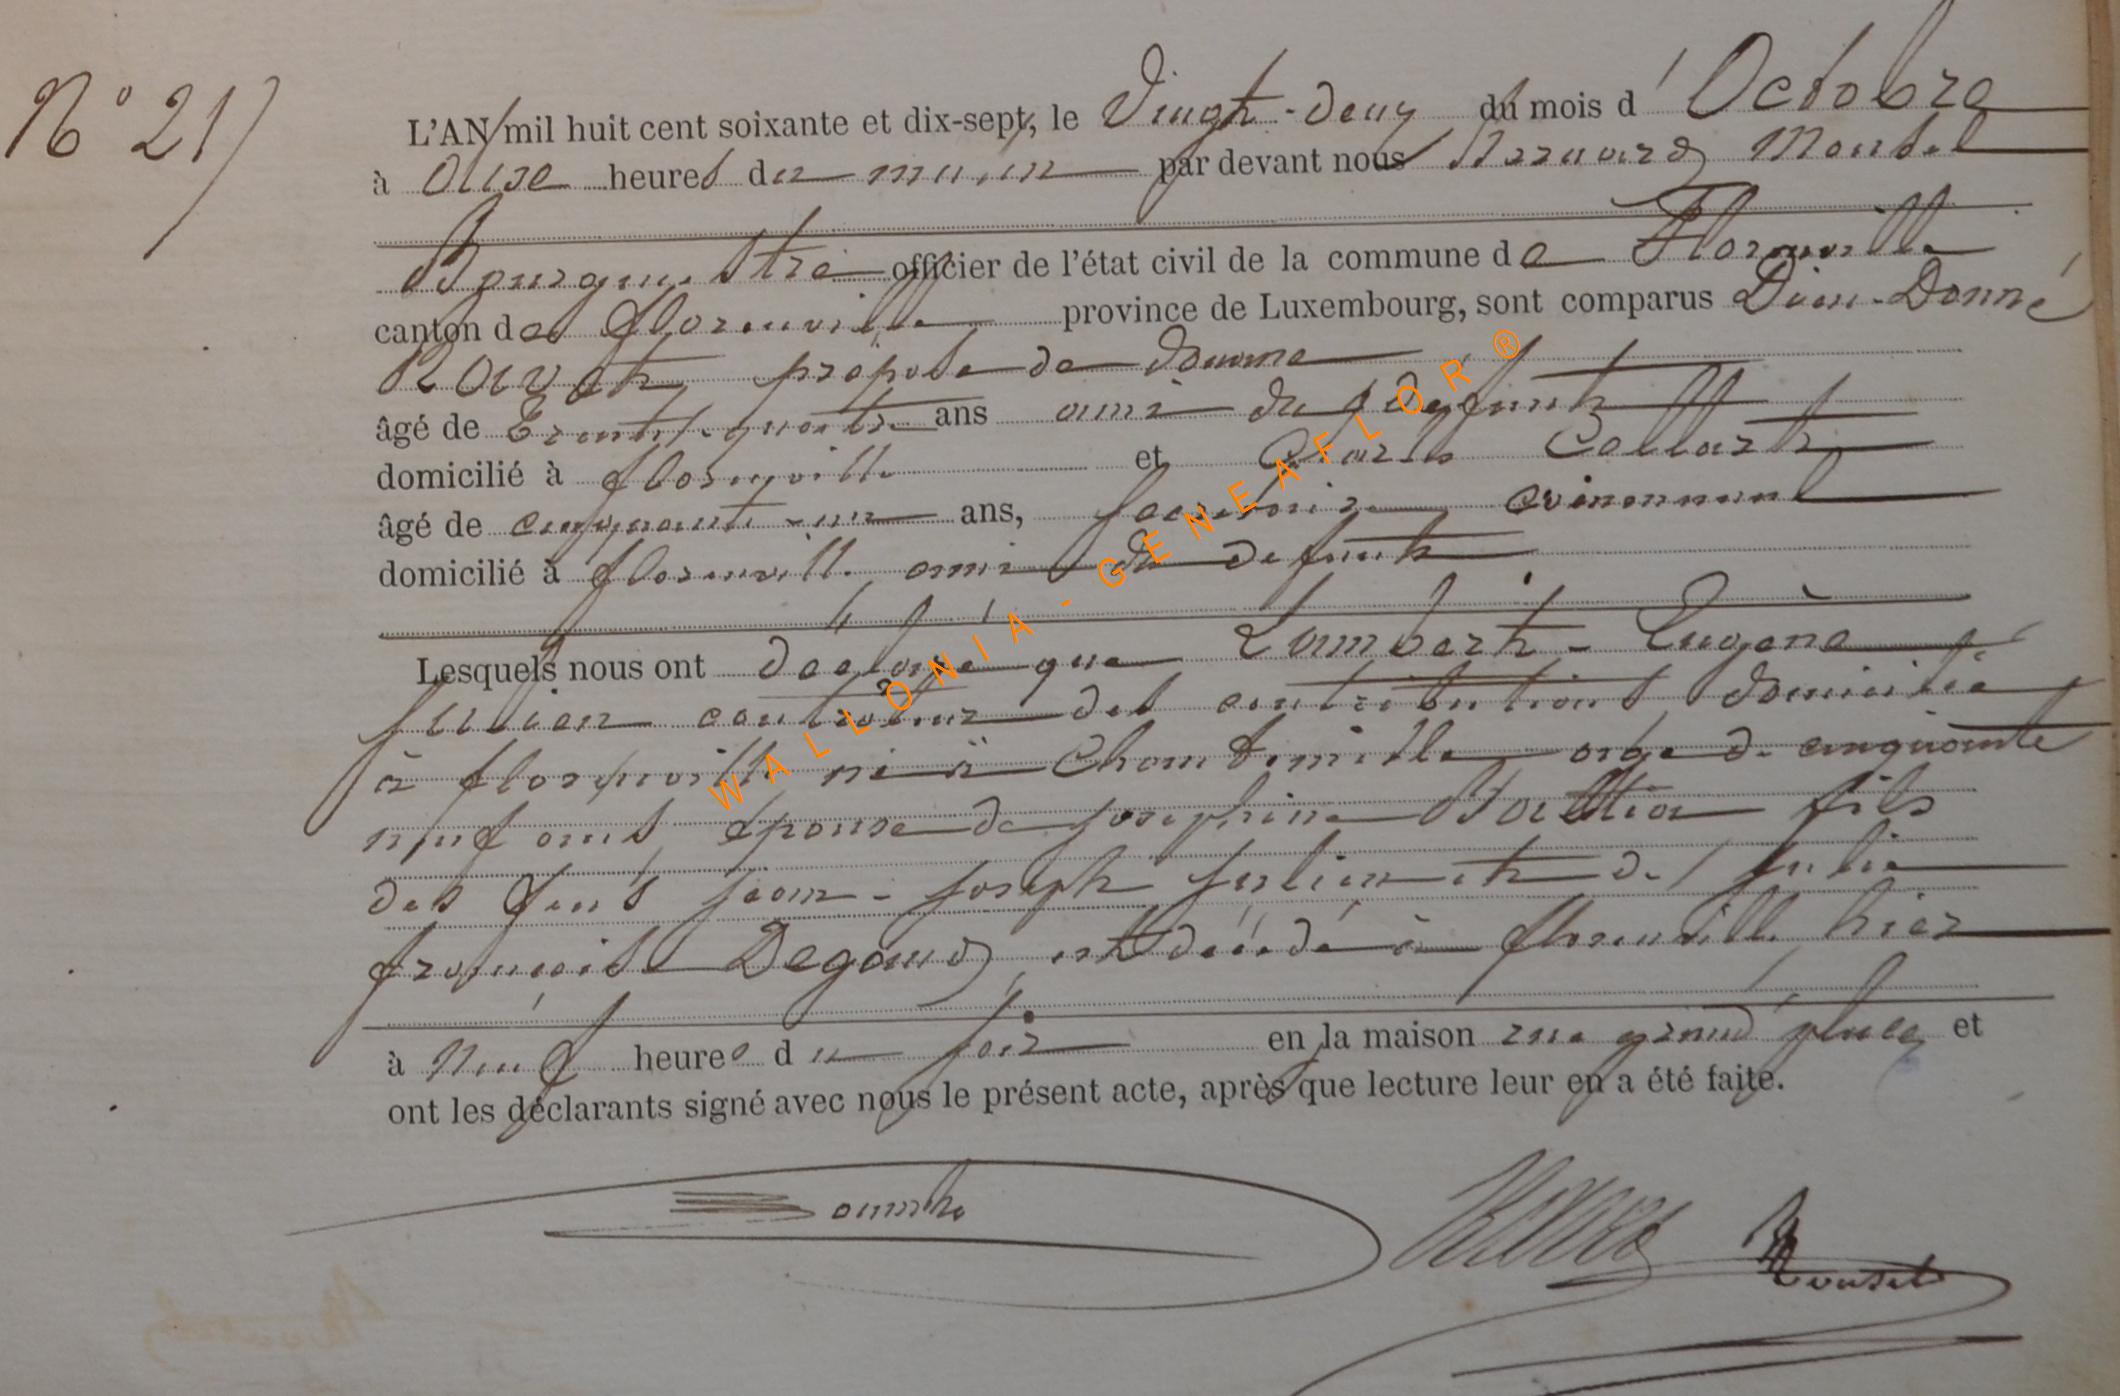 N° 21
L'AN mil huit cent soixante et dix-sept, le Vingt-deux du mois d'Octobre
à Onse heures du matin par devant nous Bernard Moutel
Bourgmestre officier de l'état civil de la commune de Florenville
canton de florenville province de Luxembourg, sont comparus Dieu-Donné
Ravet préposé de douane
âgé de Trente-quatre ans ami du défunt
domicilié à florenville et Charles Collart
âgé de cinquante-un ans, secretaire communal
domicilié à florenville, ami du defunt
Lesquels nous ont déclaré que Lambert-Eugène
Julien contrôleur des contributions domicilié
à florenville né à Chantemelle age de cinquante
neuf ans, épouse de Josephine fils
des feus Jean-Joseph Julien et de Julie
françoise Degand, est décédé à florenville hier
à Neuf heures du soir en la maison rue grand place, et
ont les déclarants signé avec nous le présent acte, après que lecture leur en a été faite.
WALLONIA-GENEAFLOR®